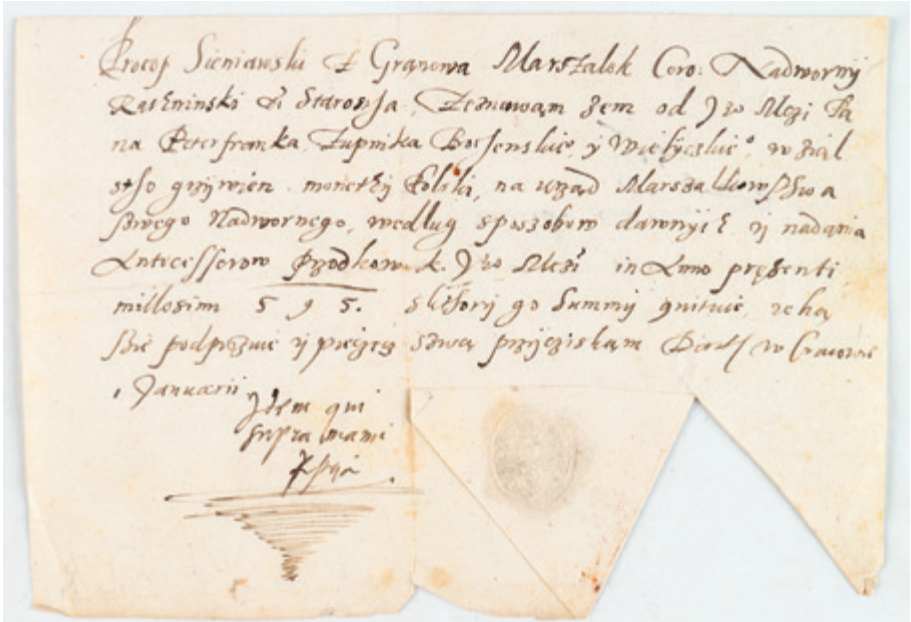 Procop Sieniawski z Granowa Marszalok Coro: Nadworny
Starosta, zeznawam zem od Je° Mczi Pa
na Peterfranka Zupnika Bochenskie° y Wielyczkie°
grzywien monethy Polski, na urząd Marszalkowsthwa
swego Nadwornego, według sposzobow dawnych y nadania
Antecessorow Przodkow K. Je° Mczi in Anno presenti
millesimo 595. skthorij go Summy quituie, ręką
się podpisuię y pieczęcz swą przycziskam Dat w Cracowie
1 Januarii
Idem qui
supra manu